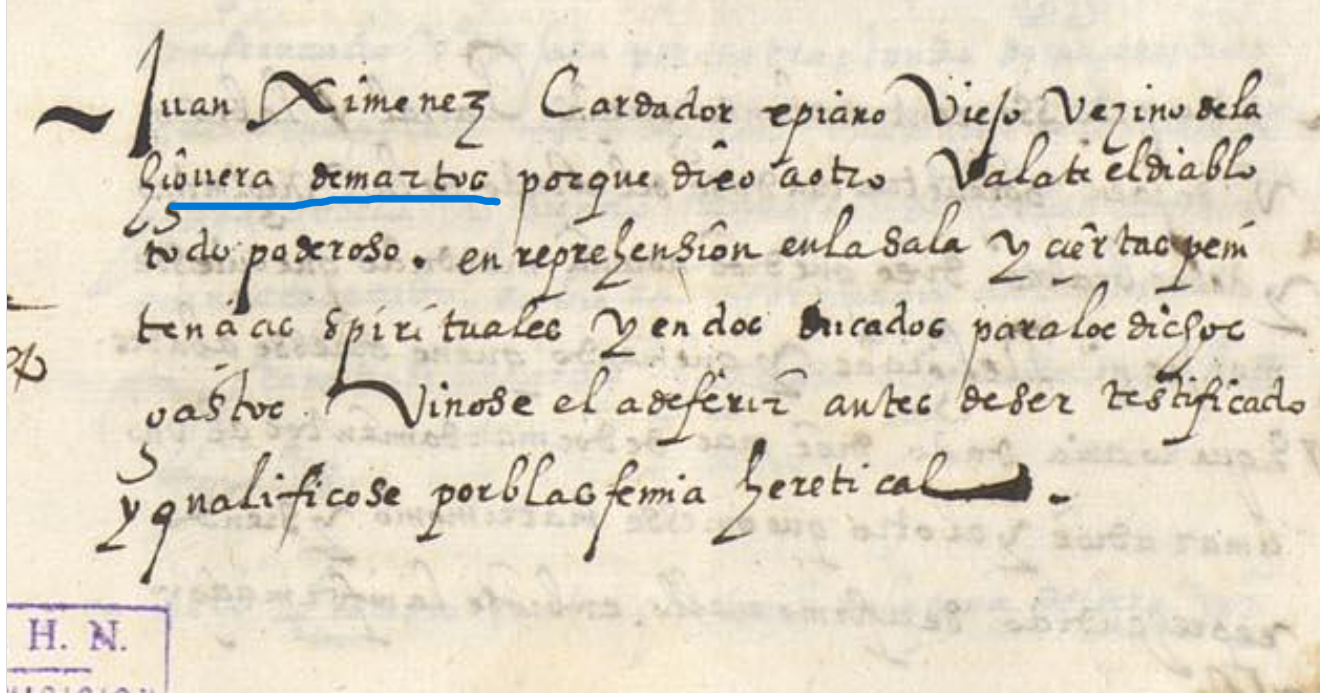 Juan Ximenez Cardador xpiano Viejo Vezino de la
higuera de martos porque dixo a otro Valate el diablo
todo poderoso. en reprehension en la sala y ciertas peni
tencias spirituales y en dos ducados para los dichos
gastos. Vinose el a deferir antes de ser testificado
y qualificose por blasfemia heretical.
H. N.